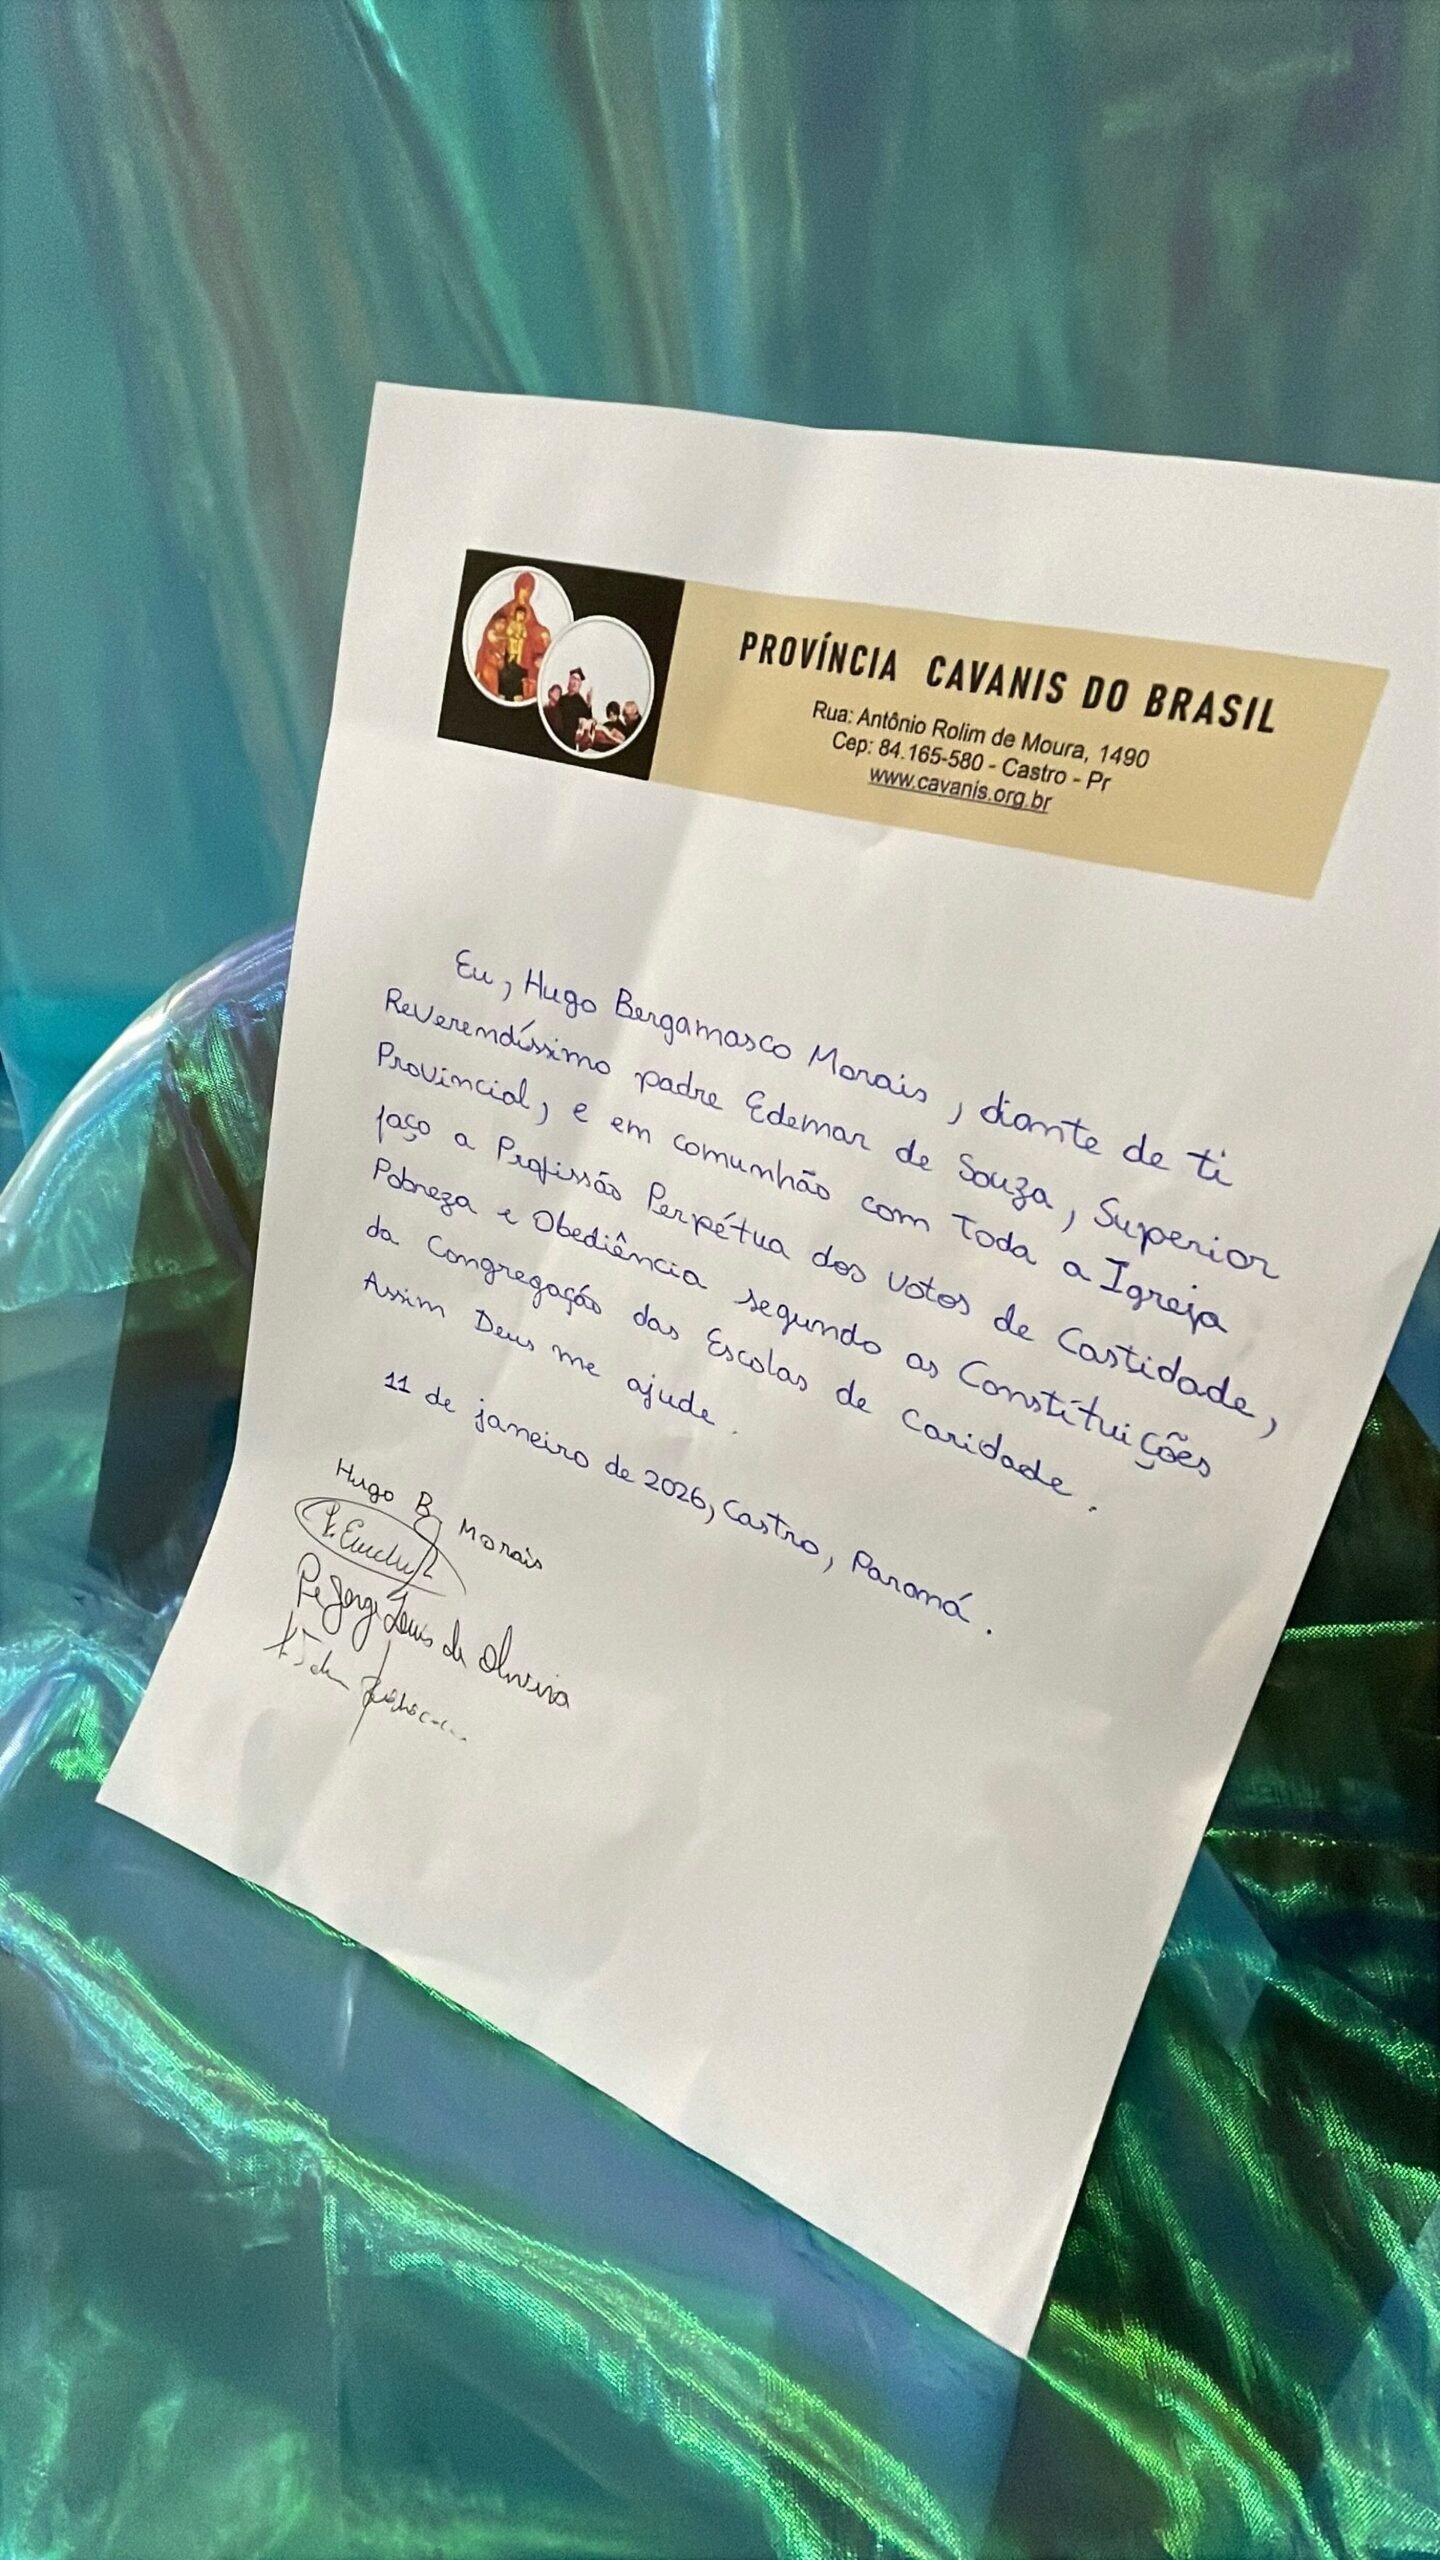 PROVÍNCIA CAVANIS DO BRASIL
Rua: Antônio Rolim de Moura, 1490
Cep: 84.165-580 - Castro - Pr
www.cavanis.org.br
Eu, Hugo Bergamasco Morais, diante de ti
Reverendíssimo padre Edemar de Souza, Superior
Provincial, e em comunhão com toda a Igreja
faço a Profissão Perpétua dos votos de Castidade,
Pobreza e Obediência segundo as Constituições
da Congregação das Escolas de Caridade.
Assim Deus me ajude.
11 de janeiro de 2026, Castro, Paraná.
Hugo B. Morais
Pe Jorge Luis de Oliveira